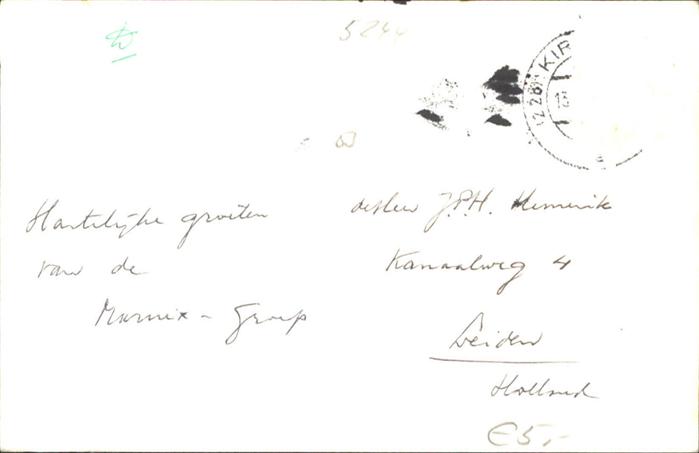 5244
(22b) KIR
18.
Hartelijke groeten
van de
Marnix - Groep
J.P.H. Hemerik
Kanaalweg 4
Leiden
Holland
€5,-